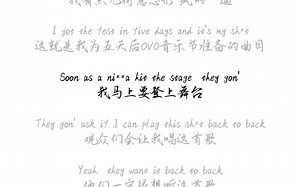 I got the fest in five days and it's my sh*t
这就是我为五天后OVO音乐节准备的曲目
Soon as a ni**a hit the stage they gon'
我马上要登上舞台
They gon' ask if I can play this sh*t back to back
观众们会让我唱这首歌
Yeah they want it back to back
他们一定很想听这首歌